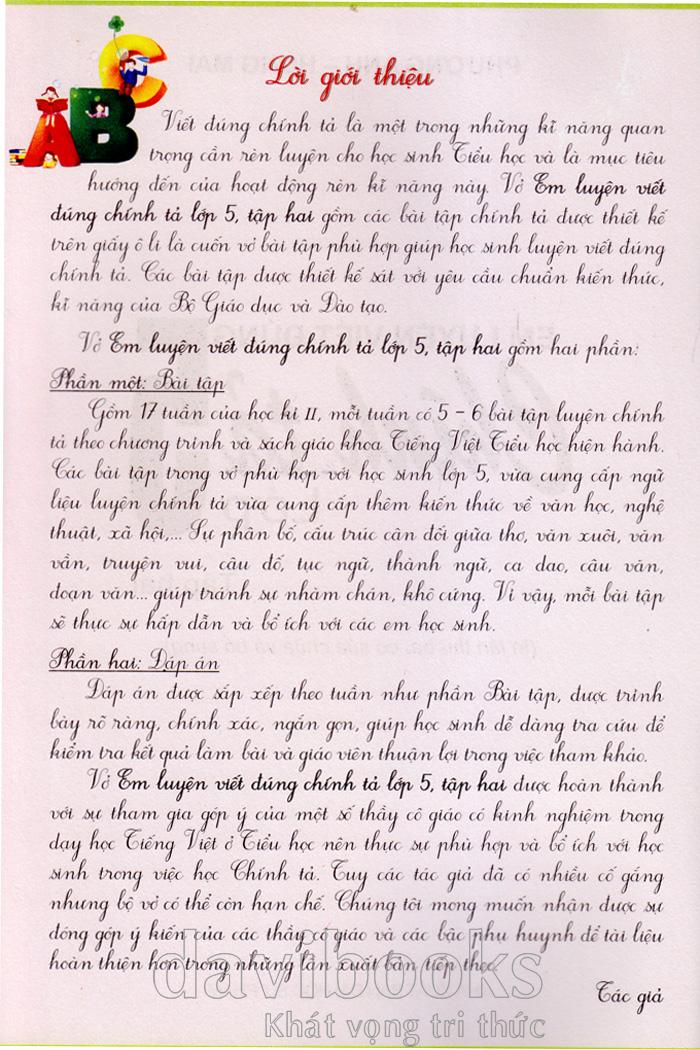 ABC
Lời giới thiệu
Viết đúng chính tả là một trong những kĩ năng quan
trọng cần rèn luyện cho học sinh Tiểu học và là mục tiêu
hướng đến của hoạt động rèn kĩ năng này. Vở Em luyện viết
đúng chính tả lớp 5, tập hai gồm các bài tập chính tả được thiết kế
trên giấy ô li là cuốn vở bài tập phù hợp giúp học sinh luyện viết đúng
chính tả. Các bài tập được thiết kế sát với yêu cầu chuẩn kiến thức,
kĩ năng của Bộ Giáo dục và Đào tạo.
Vở Em luyện viết đúng chính tả lớp 5, tập hai gồm hai phần:
Phần một: Bài tập
Gồm 17 tuần của học kì II, mỗi tuần có 5 - 6 bài tập luyện chính
tả theo chương trình và sách giáo khoa Tiếng Việt Tiểu học hiện hành.
Các bài tập trong vở phù hợp với học sinh lớp 5, vừa cung cấp ngữ
liệu luyện chính tả vừa cung cấp thêm kiến thức về văn học, nghệ
thuật, xã hội,... Sự phân bố, cấu trúc cân đối giữa thơ, văn xuôi, văn
vần, truyện vui, câu đố, tục ngữ, thành ngữ, ca dao, câu văn,
đoạn văn... giúp tránh sự nhàm chán, khô cứng. Vì vậy, mỗi bài tập
sẽ thực sự hấp dẫn và bổ ích với các em học sinh.
Phần hai: Đáp án
Đáp án được sắp xếp theo tuần như phần Bài tập, được trình
bày rõ ràng, chính xác, ngắn gọn, giúp học sinh dễ dàng tra cứu để
kiểm tra kết quả làm bài và giáo viên thuận lợi trong việc tham khảo.
Vở Em luyện viết đúng chính tả lớp 5, tập hai được hoàn thành
với sự tham gia góp ý của một số thầy cô giáo có kinh nghiệm trong
dạy học Tiếng Việt ở Tiểu học nên thực sự phù hợp và bổ ích với học
sinh trong việc học Chính tả. Tuy các tác giả đã có nhiều cố gắng
nhưng bộ vở có thể còn hạn chế. Chúng tôi mong muốn nhận được sự
đóng góp ý kiến của các thầy cô giáo và các bậc phụ huynh để tài liệu
hoàn thiện hơn trong những lần xuất bản tiếp theo.
Tác giả
davibooks
Khát vọng tri thức